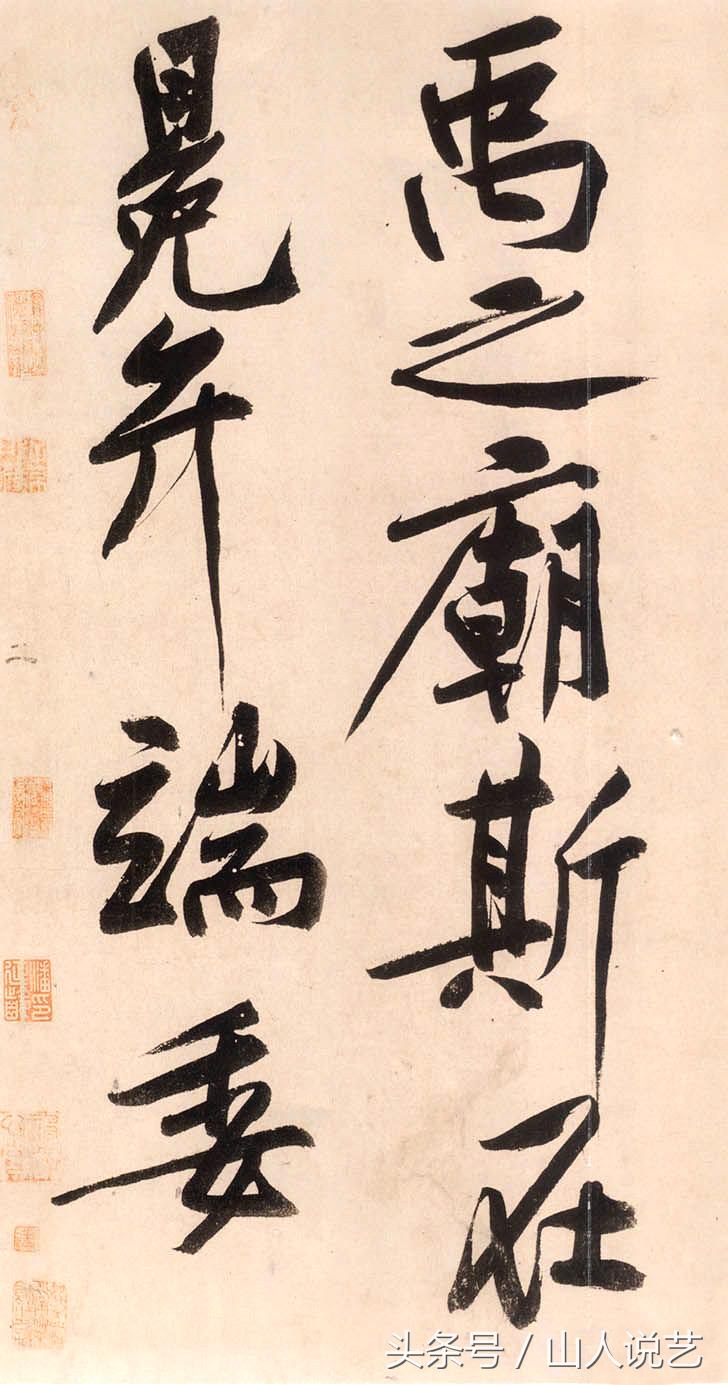 禹之廟斯在
冕弁端委
二
头条号 / 山人说艺